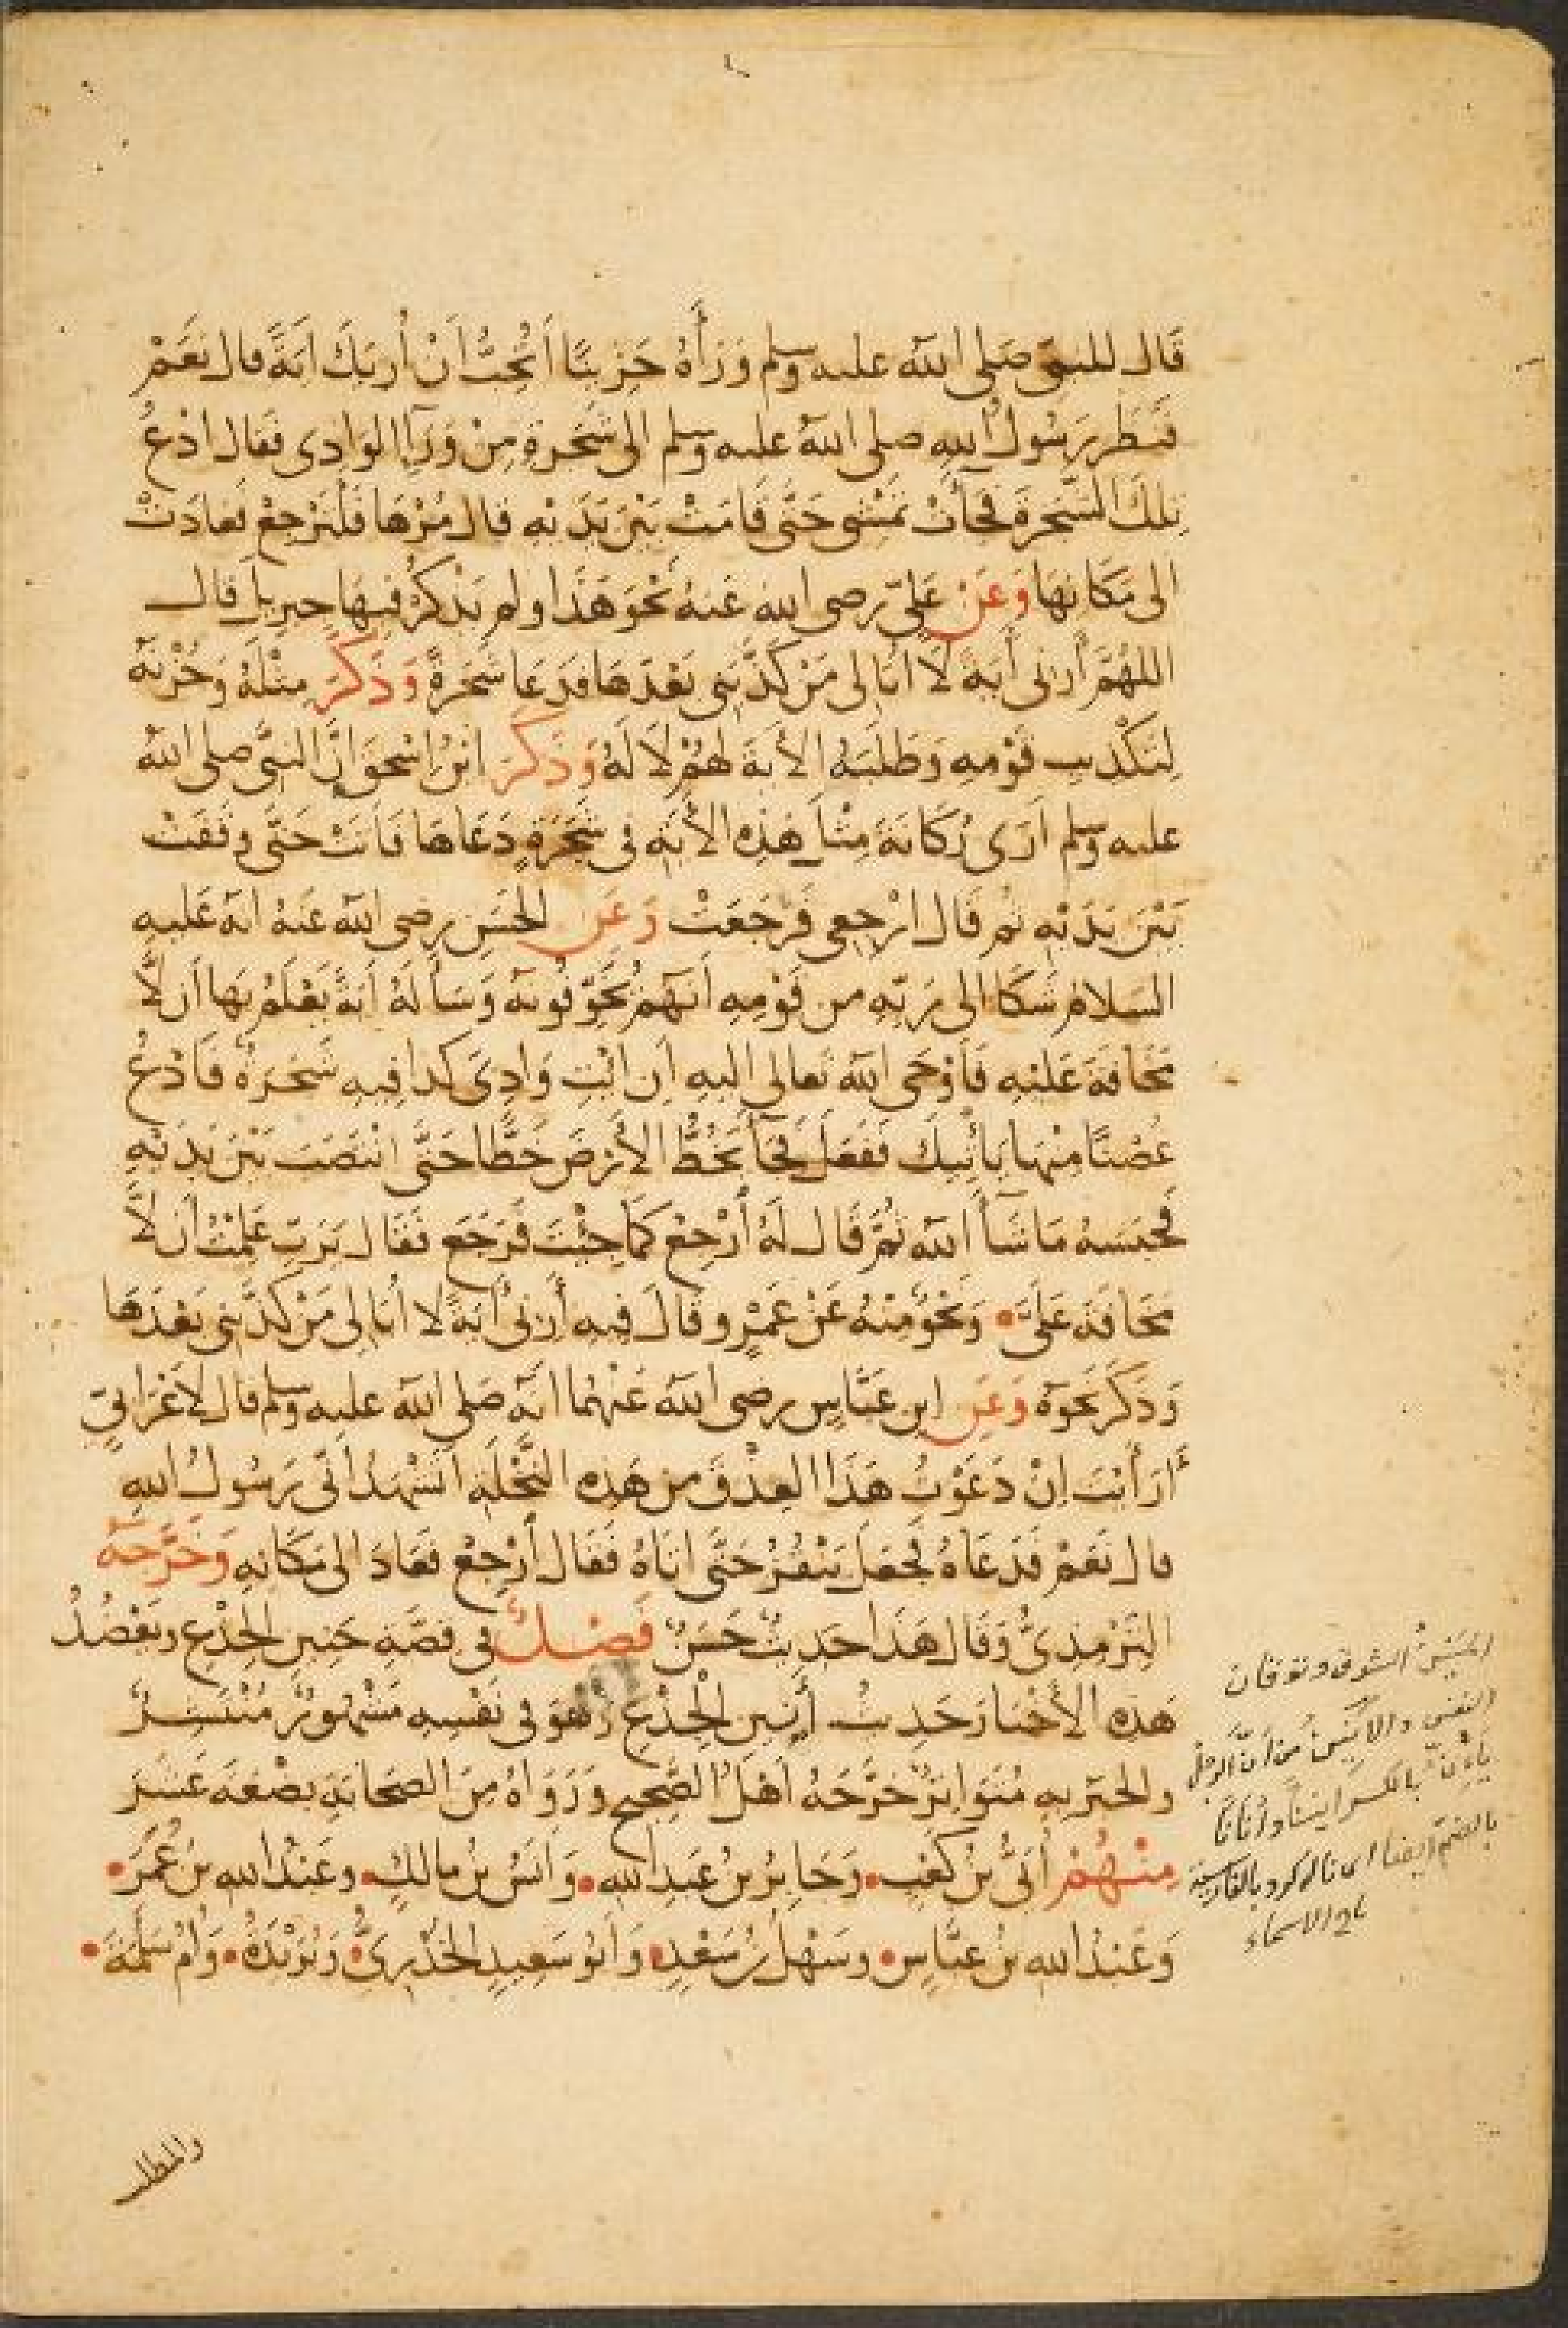 قَال للنبىّ صَلى اللّه عليه وسلم وَرَأَهُ حَزِينًا اَتُحِبُّ اَنْ اُريَكَ ايَةً قال نَعَمْ
فَنظَر رَسُولُ اللهِ صلى اللّه عليه وسلم الى شَجَرةٍ مِنْ وَرَآءِ الوَادِى فقال ادْعُ
تِلكَ الشَّجرةَ فجَآءَتْ تَمْشى حَتَّى قَامَتْ بَيْنَ يَدَيْهِ قال مُرْهَا فَلْتَرْجِعْ فَعادَتْ
الى مَكَانِهَا وَعَنْ عَلىّ رضى الله عَنهُ نَحْوَ هَذَا ولم يَذكُرْ فيهَا جِبرِيلَ قال
اللهُمَّ أَرِنى أَيَةً لَا اُبَالى مَنْ كَذَّبَنِى بَعْدَهَا فَدَعَا شَجَرَةً وَذَكَرَ مِثْلَهُ وَحُزْنُهُ
لِتَكْذيبِ قَوْمِهِ وَطَلَبُهُ الأَيَةَ لَهُمْ لَا لَهُ وَذَكَرَ ابْنُ اِسْحٰقَ اَنَّ النبىَّ صلى اللّه
عليه وسلم اَرَى رُكَانَةَ مِثْلَ هَذِهِ الأَيَةِ فى شَجَرَةٍ دَعَاهَا فَاَتَتْ حَتَّى وقَفَتْ
بَيْنَ يَدَيْهِ ثم قَال ارْجِعِى فَرَجَعَتْ وَعَنِ الحَسَنِ رضى اللّه عَنهُ انّهُ عَليهِ
السَلامُ شَكَا الى رَبّهِ من قَوْمِهِ اَنّهُمْ يُخَوِّفُونَهُ وَسَأَلَهُ اَيَةً يَعْلَمُ بهَا اَن لَّا
مَخَافَةَ عَلَيْهِ فَاَوْحَى اللّه تعالى اليهِ اَن ائْتِ وَادِىَ كذا فِيهِ شَجَرَةٌ فَادْعُ
غُصْنًا مِنْهَا يَأْتِيكَ فَفَعَلَ فَجَآءَ يَخُطُّ الأَرْضَ خَطًّا حَتَّى انْتَصَبَ بَيْنَ يَدَيْهِ
فَحَبَسَهُ مَا شَآءَ اللّه ثُمَّ قَال لَهُ اُرْجِعْ كَمَا جِئْتَ فَرَجَعَ فَقَال يَرَبِّ عَلِمْتُ اَن لَّا
مَخَافَةَ عَلَىَّ وَنَحْوٌ مِنْهُ عَنْ عُمَرَ وقَالَ فِيهِ أَرِنى أَيَةً لا اُبَالى مَنْ كَذَّبَنِى بَعْدَهَا
وَذَكَرَ نَحْوَهُ وَعَنِ ابن عَبّاسٍ رضى اللّه عَنْهُما انّهُ صَلى اللّه عليه وسلم قال لِأعْرَابِىٍّ
اَرَأَيْتَ اِنْ دَعَوْتُ هَذَا العِذْقَ من هَذِهِ النَّخْلَةِ اَتَشْهَدُ اَنّى رَسُولُ اللهِ
قال نَعَمْ فَدَعَاهُ فَجَعَلَ يَنْقُزُ حَتَّى اتَاهُ فَقَال اُرْجِعْ فَعَادَ الى مَكَانِهِ وَخَرَّجَهُ
التِّرْمِذِىُّ وَقَالَ هَذَا حَدِيثٌ حَسَنٌ فَصْلٌ فى قِصَّةِ حَنِينِ الجِذْعِ وَيَعْضُدُ
هَذِهِ الأَخْبَارَ حَدِيثُ أَنِينِ الْجِذْعِ وَهُوَ فى نَفْسِهِ مَشْهُورٌ مُنْتَشِرٌ
والخَبَرُ بِهِ مُتَوَاتِرٌ خَرَّجَهُ اَهْلُ الصَّحِيحِ وَرَوَاهُ مِنَ الصَحَابَةِ بِضْعَةَ عَشَرَ
مِنْهُمْ اُبَىُّ بْنُ كَعْبٍ وَجَابِرُ بْنُ عَبْدِ اللهِ وَاَنَسُ بْنُ مَالكٍ وعَبْدُ اللهِ بن عُمَرَ
وَعَبْدُ اللهِ بْنُ عَبّاسٍ وسَهْلُ بْنُ سَعْدٍ وَاَبُو سَعِيدٍ الخُدْرِىُّ وَبُرَيْدَةُ وَاُمُّ سَلَمَةَ
الحنين الشوق وتوقان
النفس والانين من انّ الرجل
يئن بالكسر انينا واُنانا
بالضم ايضا اى ناله كرد بالفارسية
الاسماء
والمطلب